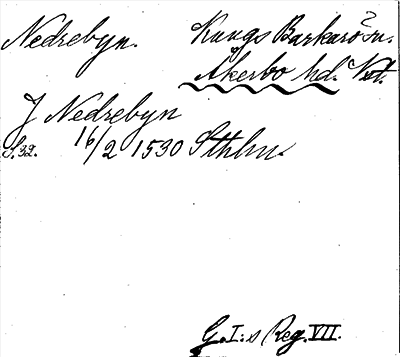 Nedrebyn. Kungs Barkarö sn.
Åkerbo hd. Vstl.
J Nedrebyn
S.32. 16/2 1530 Sthlm.
G.I:s Reg. VII.